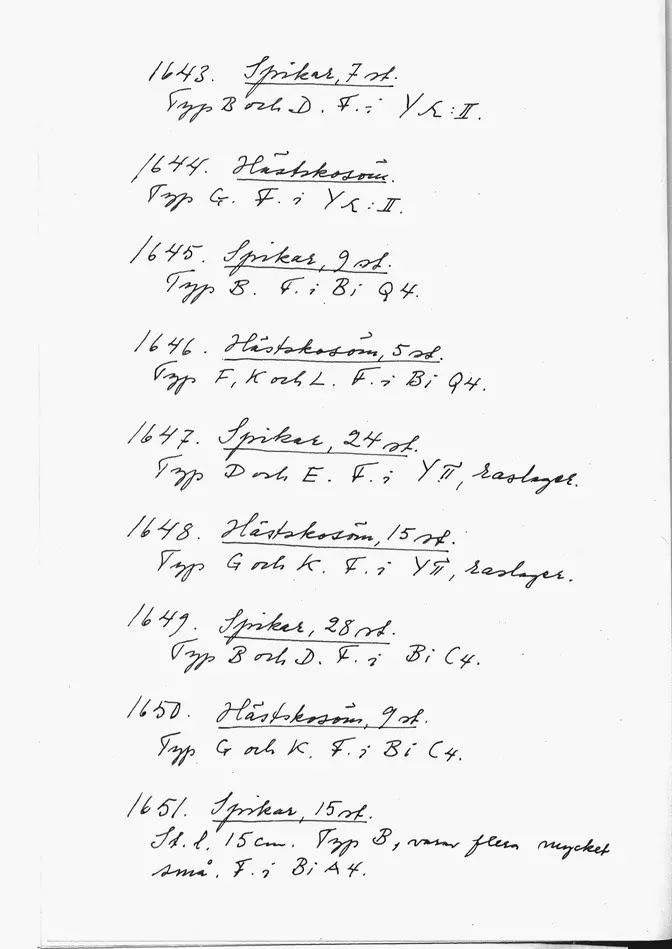 1643. Spikar, 7 st.
Typ B och D. F. i YK:II.
1644. Hästskosöm.
Typ G. F. i YK:II.
1645. Spikar, 9 st.
Typ B. F. i Bi Q4.
1646. Hästskosöm, 5 st.
Typ F, K och L. F. i Bi Q4.
1647. Spikar, 24 st.
Typ D och E. F. i YII, raslager.
1648. Hästskosöm, 15 st.
Typ G och K. F. i YII, raslager.
1649. Spikar, 28 st.
Typ B och D. F. i Bi C4.
1650. Hästskosöm, 9 st.
Typ G och K. F. i Bi C4.
1651. Spikar, 15 st.
St. l. 15 cm. Typ B, varav flera mycket
små. F. i Bi A4.